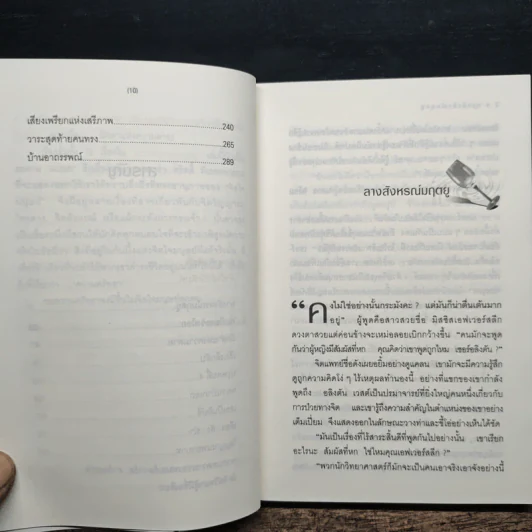 (10)
เสียงเพรียกแห่งเสรีภาพ....................................240
วาระสุดท้ายคนทรง....................................265
บ้านอาถรรพณ์....................................289
ลางสังหรณ์มฤตยู
“คงไม่ใช่อย่างนั้นกระมังคะ ? แต่มันก็น่าตื่นเต้นมาก
อยู่” ผู้พูดคือสาวสวยชื่อ มิสซิสเอฟเวอร์สลีก
ดวงตาสวยแต่ค่อนข้างจะเหม่อลอยเบิกกว้างขึ้น “คนมักจะพูด
กันว่าผู้หญิงมีสัมผัสที่หก คุณคิดว่าเขาพูดถูกไหม เซอร์อลิงตัน ?”
จิตแพทย์ชื่อดังเผยอยิ้มอย่างดูแคลน เขามักจะมีความรู้สึก
ดูถูกความคิดโง่ ๆ ไร้เหตุผลทำนองนี้ อย่างที่แขกของเขากำลัง
พูดถึง อลิงตัน เวสต์เป็นปรมาจารย์ที่ยิ่งใหญ่คนหนึ่งเกี่ยวกับ
การป่วยทางจิต และเขารู้ถึงความสำคัญในตำแหน่งของเขาอย่าง
เต็มเปี่ยม จึงแสดงออกในลักษณะวางท่าและชี้ใช่อย่างเห็นได้ชัด
“มันเป็นเรื่องที่ไร้สาระสิ้นดีที่พูดกันไปอย่างนั้น เขาเรียก
อะไรนะ สัมผัสที่หก ใช่ไหมคุณเอฟเวอร์สลีก ?”
“พวกนักวิทยาศาสตร์ก็มักจะเป็นคนเอาจริงเอาจังอย่างนี้